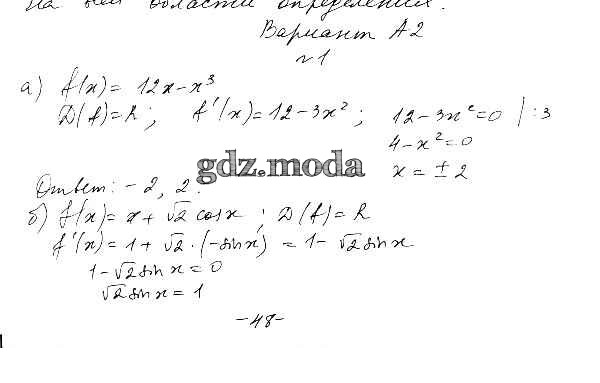 на всей области определения.
Вариант А2
№1
а) f(x) = 12x - x³
D(f) = R; f'(x) = 12 - 3x²; 12 - 3x² = 0 | :3
4 - x² = 0
gdz.moda
x = ± 2
Ответ: -2, 2.
б) f(x) = x + √2 cos x; D(f) = R
f'(x) = 1 + √2 · (-sin x) = 1 - √2 sin x
1 - √2 sin x = 0
√2 sin x = 1
-48-